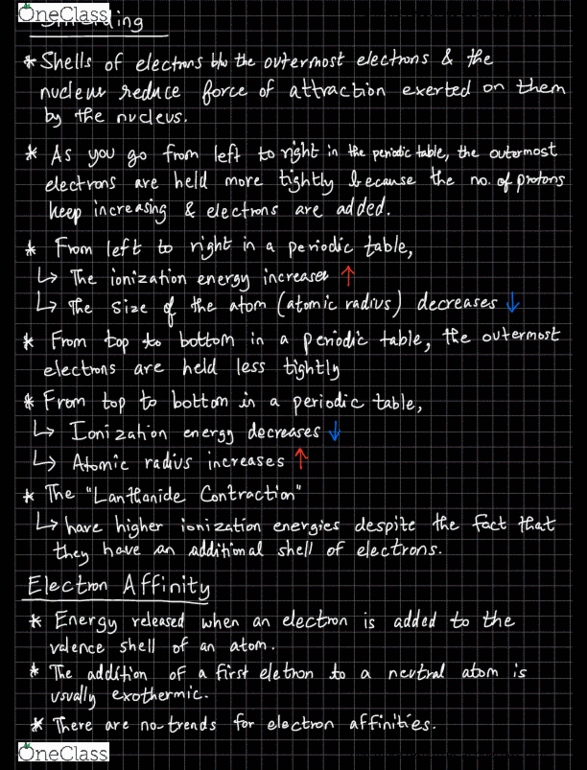 OneClass
Shielding
* Shells of electrons b/w the outermost electrons & the
nucleus reduce force of attraction exerted on them
by the nucleus.
* As you go from left to right in the periodic table, the outermost
electrons are held more tightly because the no. of protons
keep increasing & electrons are added.
* From left to right in a periodic table,
↳ The ionization energy increases ↑
↳ The size of the atom (atomic radius) decreases ↓
* From top to bottom in a periodic table, the outermost
electrons are held less tightly
* From top to bottom in a periodic table,
↳ Ionization energy decreases ↓
↳ Atomic radius increases ↑
* The "Lanthanide Contraction"
↳ have higher ionization energies despite the fact that
they have an additional shell of electrons.
Electron Affinity
* Energy released when an electron is added to the
valence shell of an atom.
* The addition of a first eletron to a neutral atom is
usually exothermic.
* There are no trends for electron affinities.
OneClass